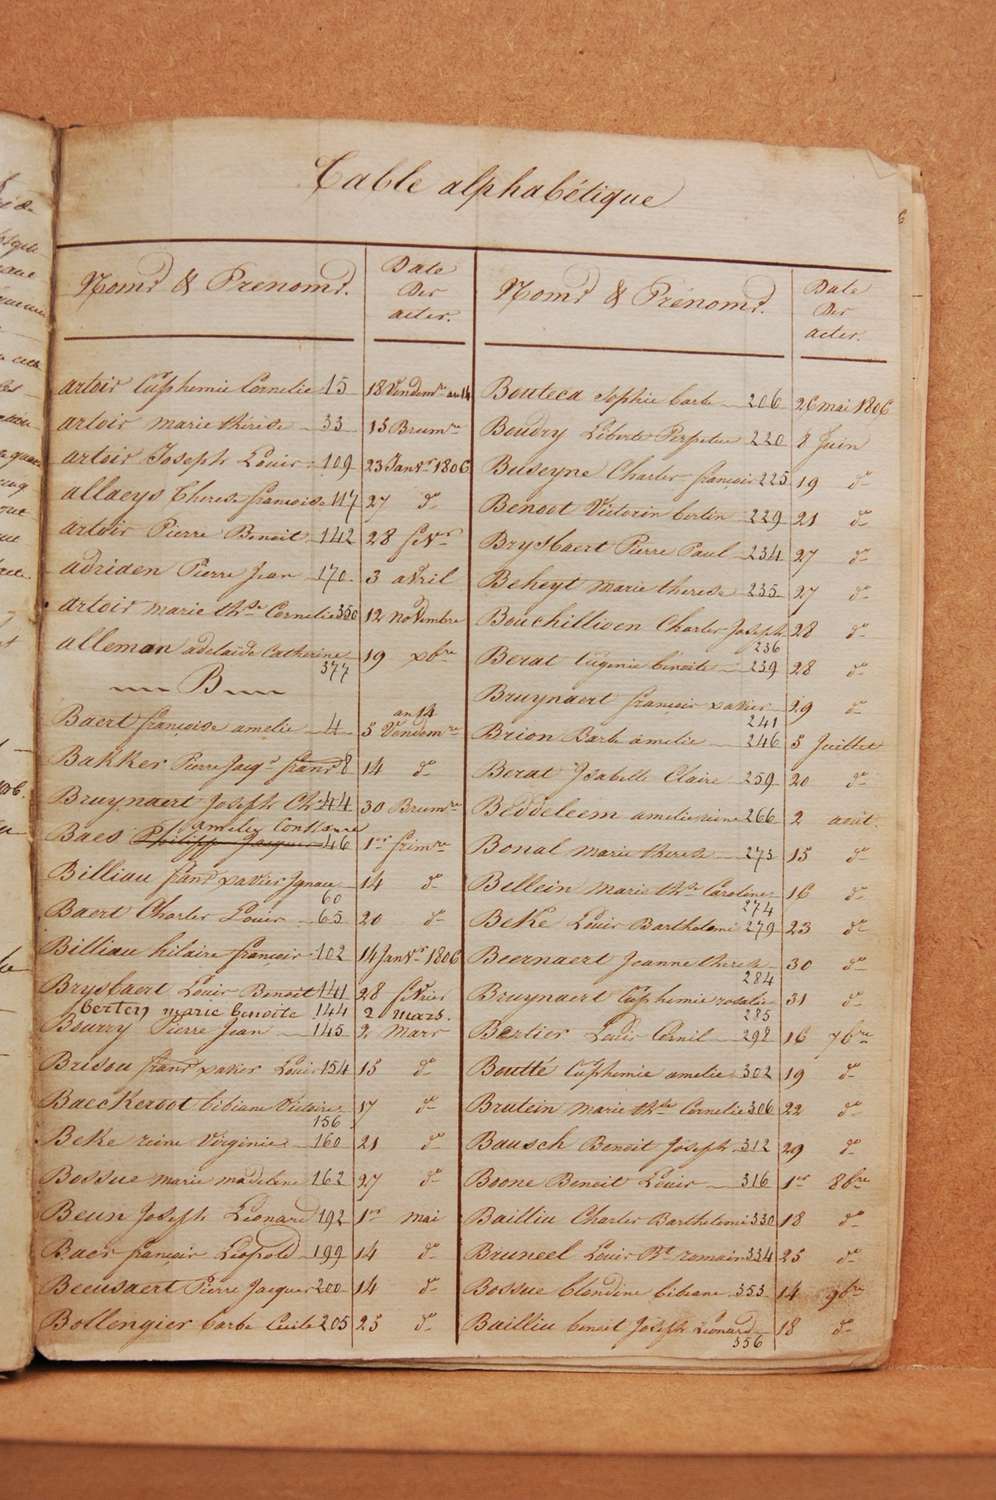 Table alphabétique
Noms & Prenoms.
Date
Des
actes.
artois Euphemie Cornelie 15 18 Vendemre an 14
artois marie thérèse 33 15 Brumre
artois Joseph Louis 109 23 Janvr 1806
allaeys Therese françoise 117 27 do
artois Pierre Benoit 142 28 fevr
adriden Pierre Jean 170 3 avril
artois marie thse Cornelie 350 12 novembre
alleman adelaide Catherine 377 19 xbre
B
Baert françoise amelie 4 5 Vendemre an 14
Bakker Pierre Jacqs frans 8 14 do
Bruynaert Joseph Ch 44 30 Brumre
amelie Constance
Baes Philippe Jacques 46 1er frimre
Billiau frans xavier Ignace 60 14 do
Baert Charles Louis 65 20 do
Billiau hilaire françois 102 14 Janvr 1806
Brysbaert Louis Benoit 141 28 fevrier
berten marie benoite 144 2 mars.
Bourry Pierre Jean 145 2 Mars
Brisou frans xavier Louis 154 15 do
Baeckeroot bibiane Victoire 156 17 do
Beke reine Virginie 160 21 do
Bossue marie madeleine 162 27 do
Beun Joseph Léonard 192 1er mai
Baes françois Léopold 199 14 do
Beeusaert Pierre Jacques 200 14 do
Bollengier barbe Cecile 205 25 do
Noms & Prénoms.
Date
Des
actes.
Bouteca Sophie barbe 206 26 mai 1806
Boudry Liberte Perpetue 220 8 Juin
Buseyne Charles françois 225 19 do
Benoot Victorin bertin 229 21 do
Brysbaert Pierre Paul 234 27 do
Beheyt marie therese 235 27 do
Bouchillioen Charles Joseph 236 28 do
Berat Eugenie benoite 239 28 do
Bruynaert françois xavier 241 29 do
Brion Barbe amelie 246 5 Juillet
Berat Isabelle Claire 259 20 do
Beddeleem amelie reine 266 2 août.
Bonal marie therese 273 15 do
Bellein marie thse Caroline 274 16 do
Beke Louis Barthelemi 279 23 do
Beernaert Jeanne therese 284 30 do
Bruynaert Euphemie rosalie 285 31 do
Bertier Louis Cornil 298 16 7bre
Boutté Euphemie amelie 302 19 do
Brutein marie thse Cornelie 306 22 do
Bausch Benoit Joseph 312 29 do
Boone Benoit Louis 316 1er 8bre
Bailliu Charles Barthelemi 330 18 do
Bruneel Louis Bt romain 334 25 do
Bossue blondine bibiane 353 14 9bre
Bailliu benoit Joseph Léonard 356 18 do